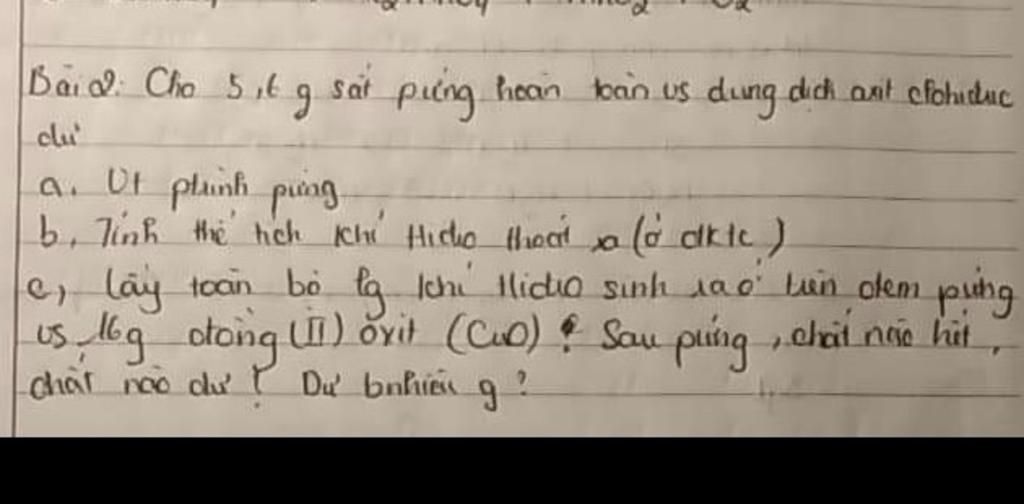 Bài 2: Cho 5,6 g sắt pứng hoàn toàn vs dung dịch axit clohiđric
dư
a. Vt ptrình pứng
b, Tính thể tích khí Hiđro thoát ra (ở đktc)
c, lấy toàn bộ lg khí Hiđro sinh ra ở trên đem pứng
vs 16g đồng (II) oxit (CuO) ? Sau pứng, chất nào hết,
chất nào dư? Dư bnhiêu g?